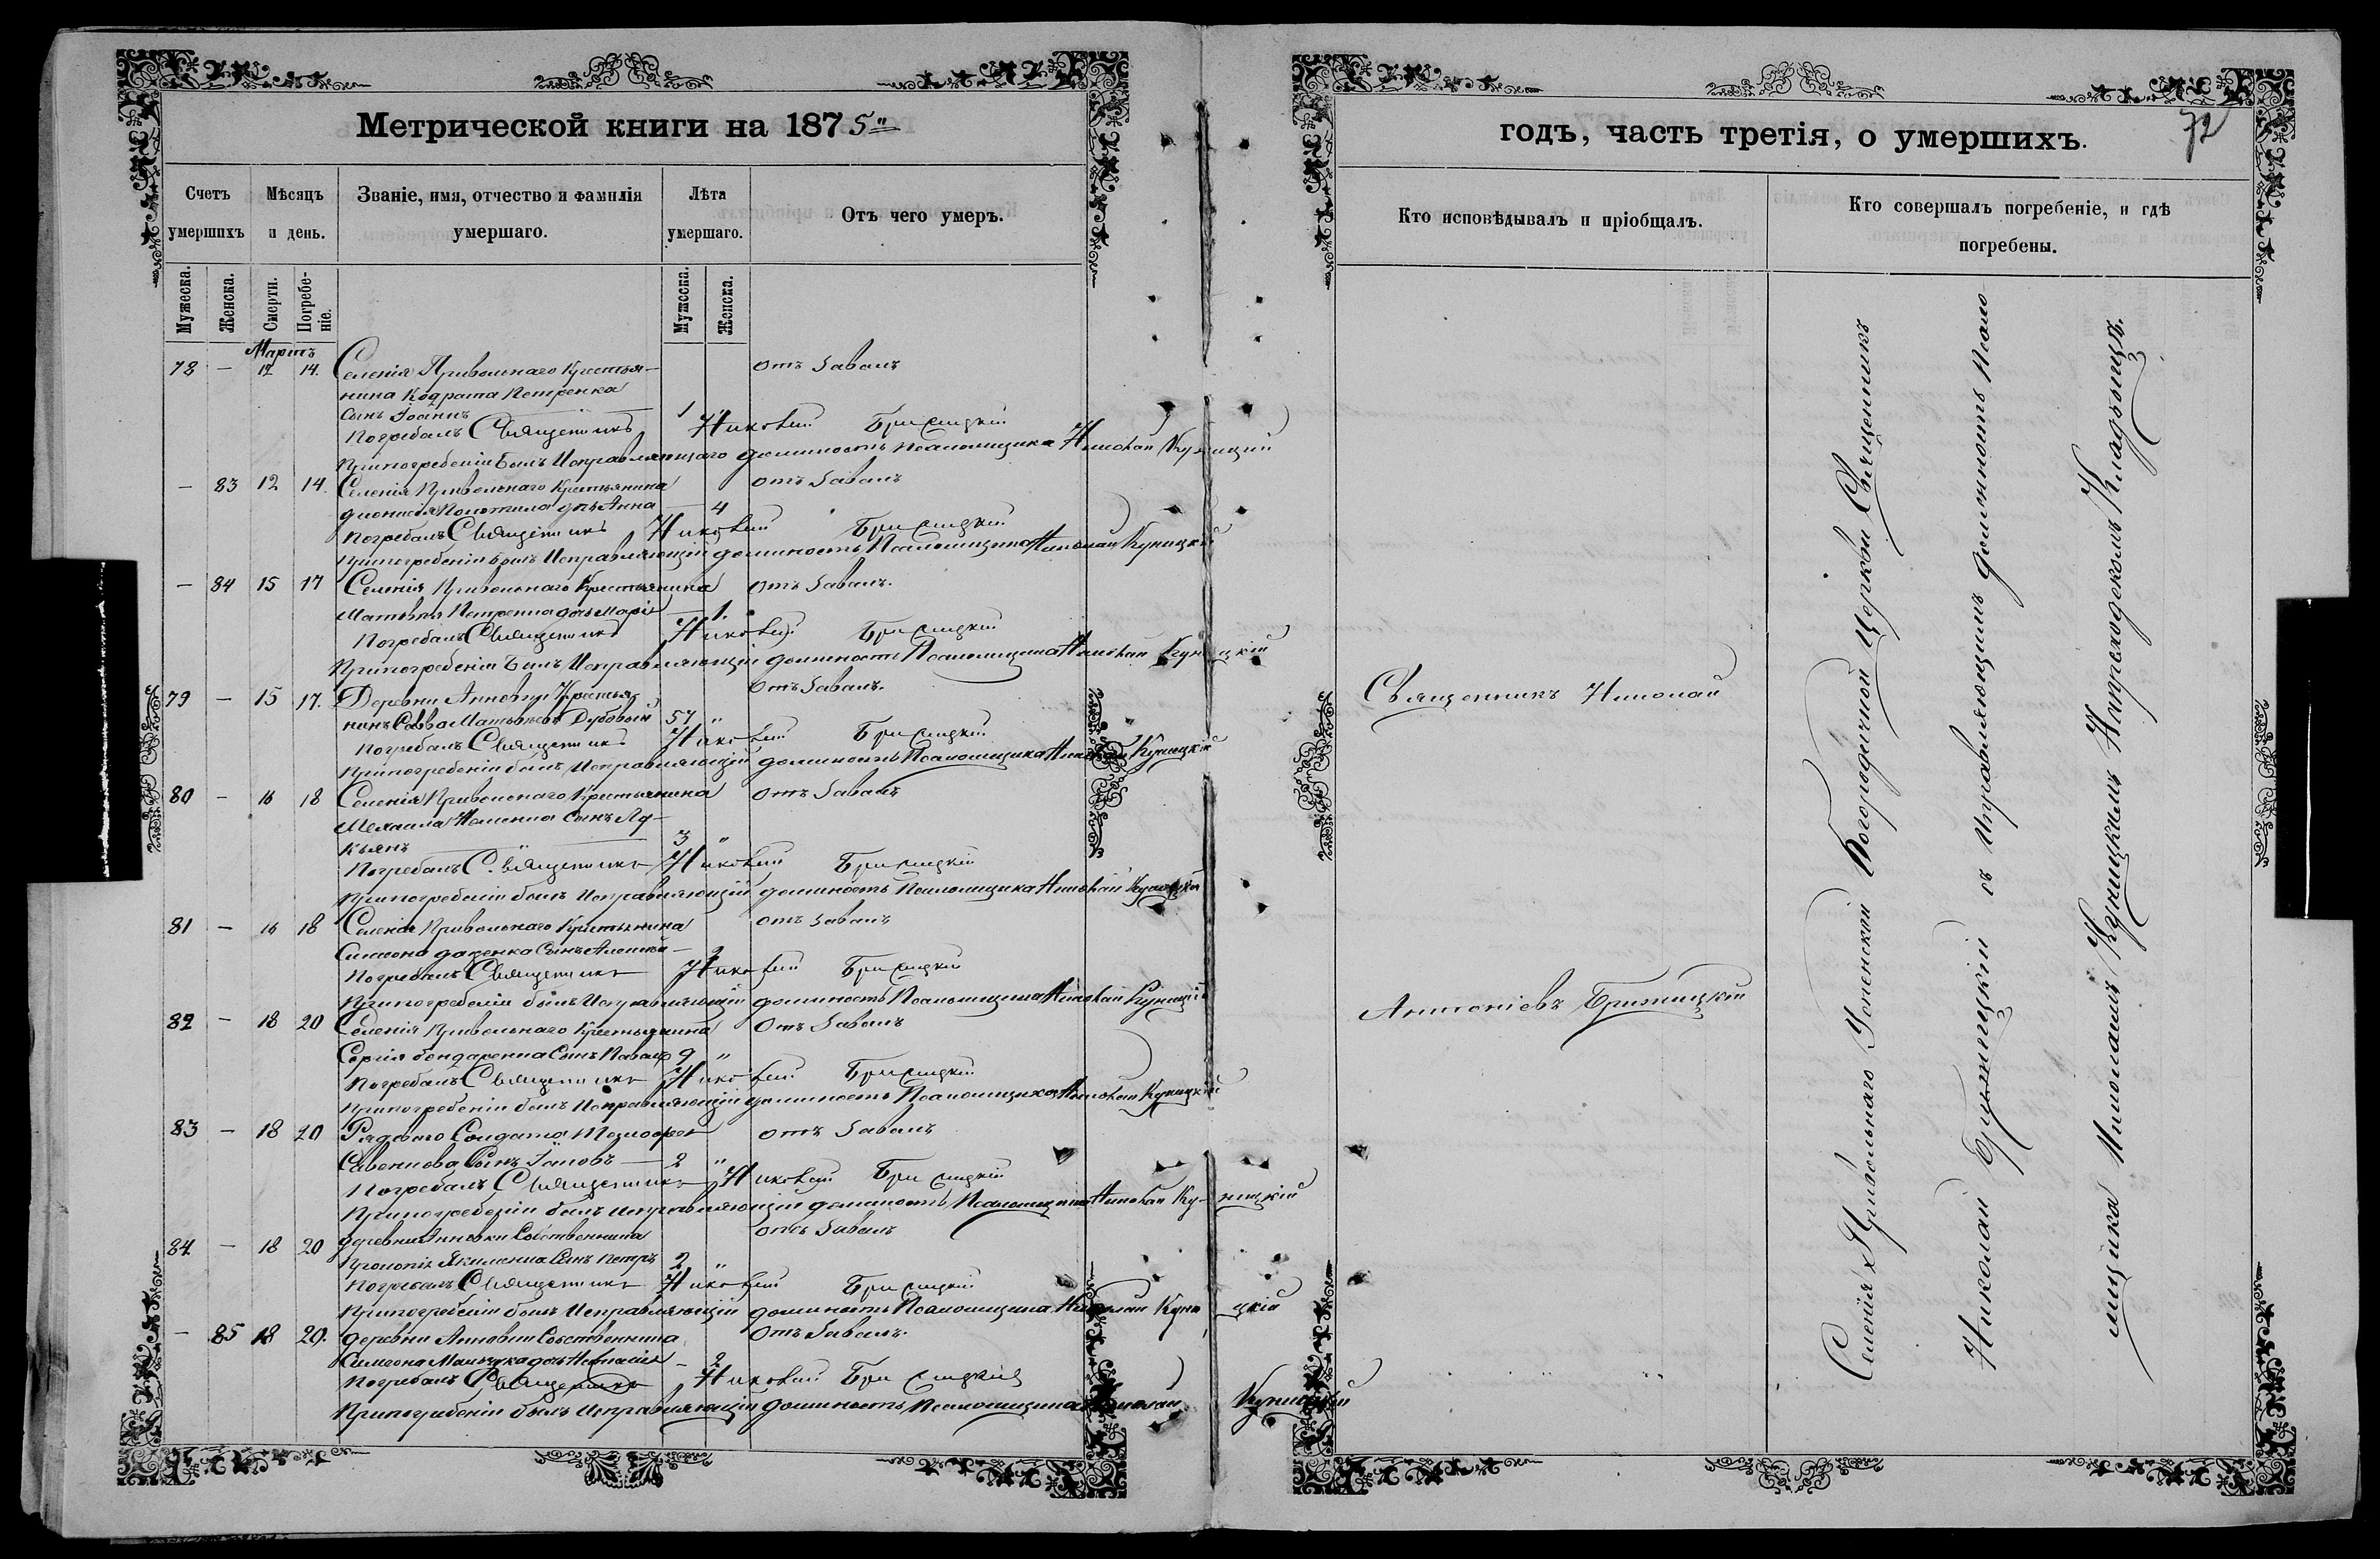 Метрической книги на 1875"
Счетъ умершихъ
Мѣсяцъ и день.
Званіе, имя, отчество и фамилія умершаго.
Лѣта умершаго.
Отъ чего умеръ.
Мужеска.
Женска.
Смерти.
Погребе-
ніе.
Мужеска.
Женска.
Мартъ
78 — 12 14. Селенія Привольнаго Крестья- отъ Завалъ
нина Кодрата Петренка
сынъ Іоаннъ 1 "
Погребалъ Священникъ Николай Бржицкій
При погребеніи былъ Исправляющаго должность псаломщика Николай Куницкій
— 83 12 14. Селенія Привольнаго Крестьянина отъ Завалъ
дочь Анна — 4
Погребалъ Священникъ Николай Бржицкій
При погребеніи былъ Исправляющій должность Псаломщика Николай Куницкій
— 84 15 17 Селенія Привольнаго Крестьянина отъ Завалъ.
Матвѣя Петренка дочь Марія — 1.
Погребалъ Священникъ Николай Бржицкій
При погребеніи Былъ Исправляющій должность Псаломщика Николай Куницкій
79 — 15 17. Деревни Анновки Крестья- Отъ Завалъ.
нинъ Савва Матвѣевъ Дубовый 57 "
Погребалъ Священникъ Николай Бржицкій
При погребеніи былъ Исправляющій должность Псаломщика Николай Куницкій
80 — 16 18 Селенія Привольнаго Крестьянина Отъ Завалъ
Михаила сынъ Лу-
кьянъ 3 "
Погребалъ Священникъ Николай Бржицкій
При погребеніи былъ Исправляющій должность Псаломщика Николай Куницкій
81 — 16 18 Селенія Привольнаго Крестьянина отъ Завалъ
Симеона сынъ Алексѣй — 2
Погребалъ Священникъ Николай Бржицкій
При погребеніи былъ Исправляющій должность Псаломщика Николай Куницкій
82 — 18 20 Селенія Привольнаго Крестьянина Отъ Завалъ
Сергія бондаренка Сынъ 9 "
Погребалъ Священникъ Николай Бржицкій
При погребеніи былъ Исправляющій должность Псаломщика Николай Куницкій
83 — 18 20 Рядоваго Солдата отъ Завалъ
Савенкова Сынъ Іаковъ — 2 "
Погребалъ Священникъ Николай Бржицкій
При погребеніи былъ Исправляющій должность Псаломщика Николай Куницкій
84 — 18 20 деревни Анновки Собственника отъ Завалъ
Прокопія Якименка Сынъ Петръ 2 "
Погребалъ Священникъ Николай Бржицкій
При погребеніи былъ Исправляющій должность Псаломщика Николай Куницкій
— 85 18 20. деревни Анновки Собственника Отъ Завалъ.
Симеона дочь — 2
Погребалъ Священникъ Николай Бржицкій
При погребеніи былъ Исправляющій должность Псаломщика Николай Куницкій
годъ, часть третія, о умершихъ.
72
Кто исповѣдывалъ и пріобщалъ.
Кто совершалъ погребеніе, и гдѣ погребены.
Священникъ Николай
Антоніевъ Бржицкій
Селенія Привольнаго Успенской Богородичной Церкви Священникъ
Николай Бржицкій съ Исправляющимъ должность Псало-
мщика Николаемъ Куницкимъ На приходскомъ Кладбищѣ.